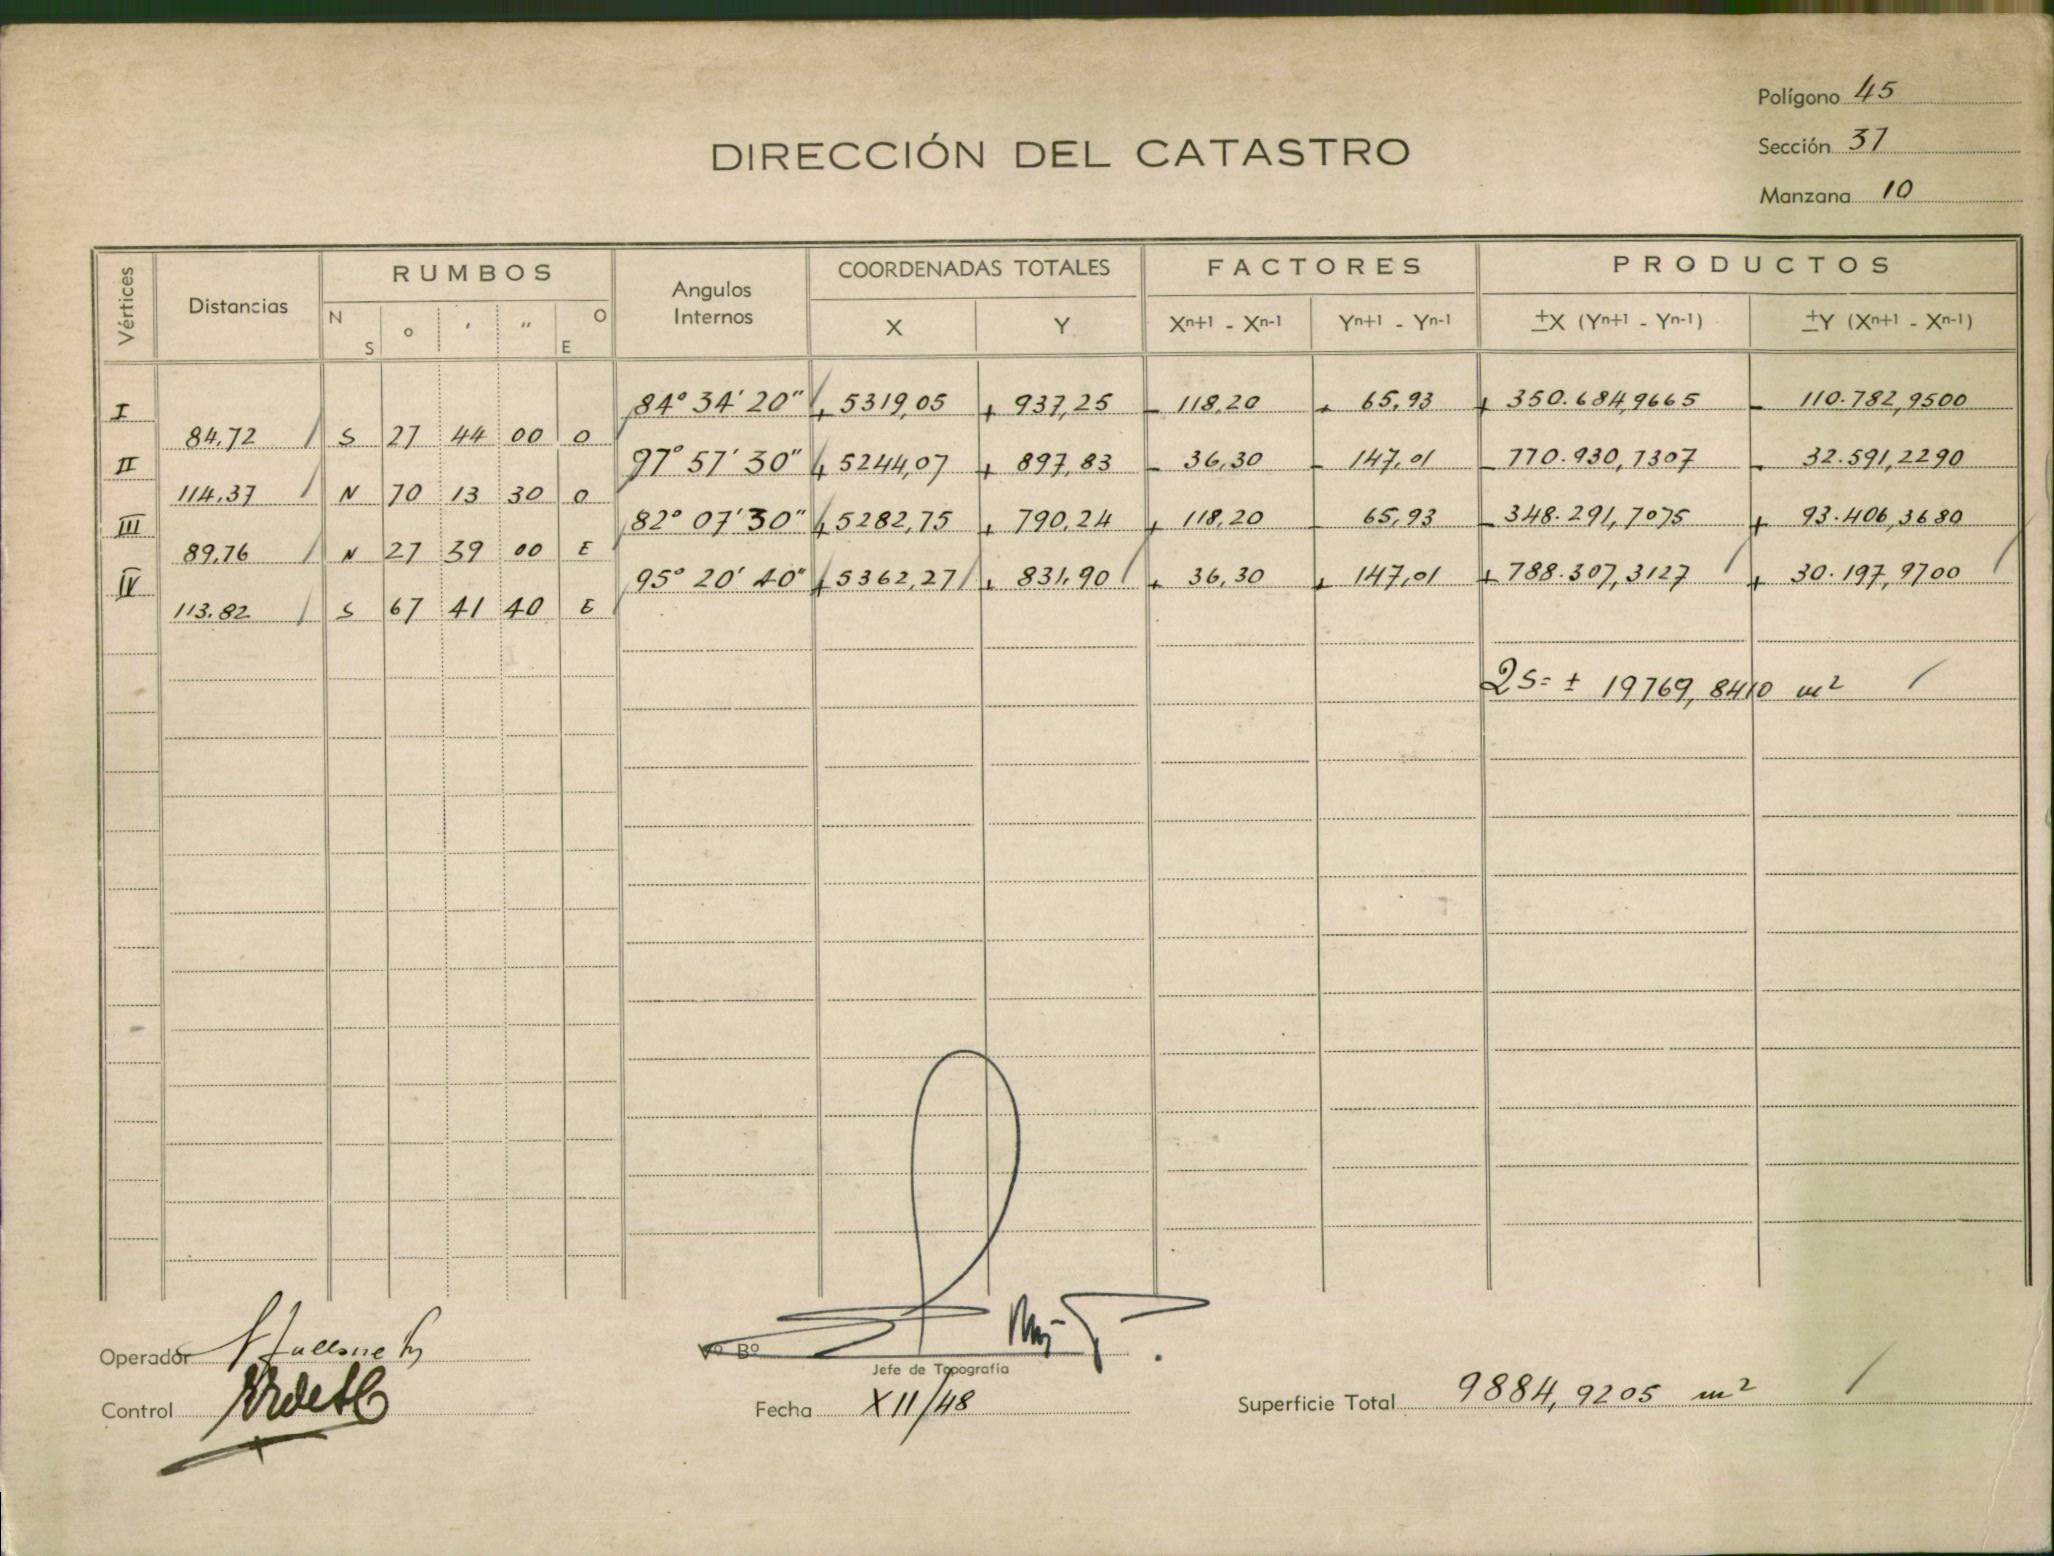 Polígono 45
Sección 37
Manzana 10
DIRECCIÓN DEL CATASTRO
Vértices Distancias RUMBOS Angulos Internos COORDENADAS TOTALES FACTORES PRODUCTOS
N S o ' " O E X Y Xn+1 - Xn-1 Yn+1 - Yn-1 ±X (Yn+1 - Yn-1) ±Y (Xn+1 - Xn-1)
I 84° 34' 20" + 5319,05 + 937,25 - 118,20 + 65,93 + 350.684,9665 - 110.782,9500
84,72 S 27 44 00 O
II 97° 57' 30" + 5244,07 + 897,83 - 36,30 - 147,01 - 770.930,7307 - 32.591,2290
114,37 N 70 13 30 O
III 82° 07' 30" + 5282,75 + 790,24 + 118,20 - 65,93 - 348.291,7075 + 93.406,3680
89,76 N 27 39 00 E
IV 95° 20' 40" + 5362,27 + 831,90 + 36,30 + 147,01 + 788.307,3127 + 30.197,9700
113.82 S 67 41 40 E
2S= ± 19769,8410 m²
Operador
Vº Bº
Jefe de Topografía
Control
Fecha XII/48
Superficie Total 9884,9205 m²